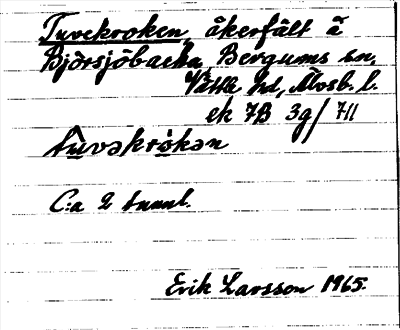 Tuvekroken, åkerfält å
Björsjöbacka, Bergums sn,
Vättle hd, Älvsb. l.
ek 7B 3g/711
tùvəkrò̀kən
C:a 2 tunnl.
Erik Larsson 1965.